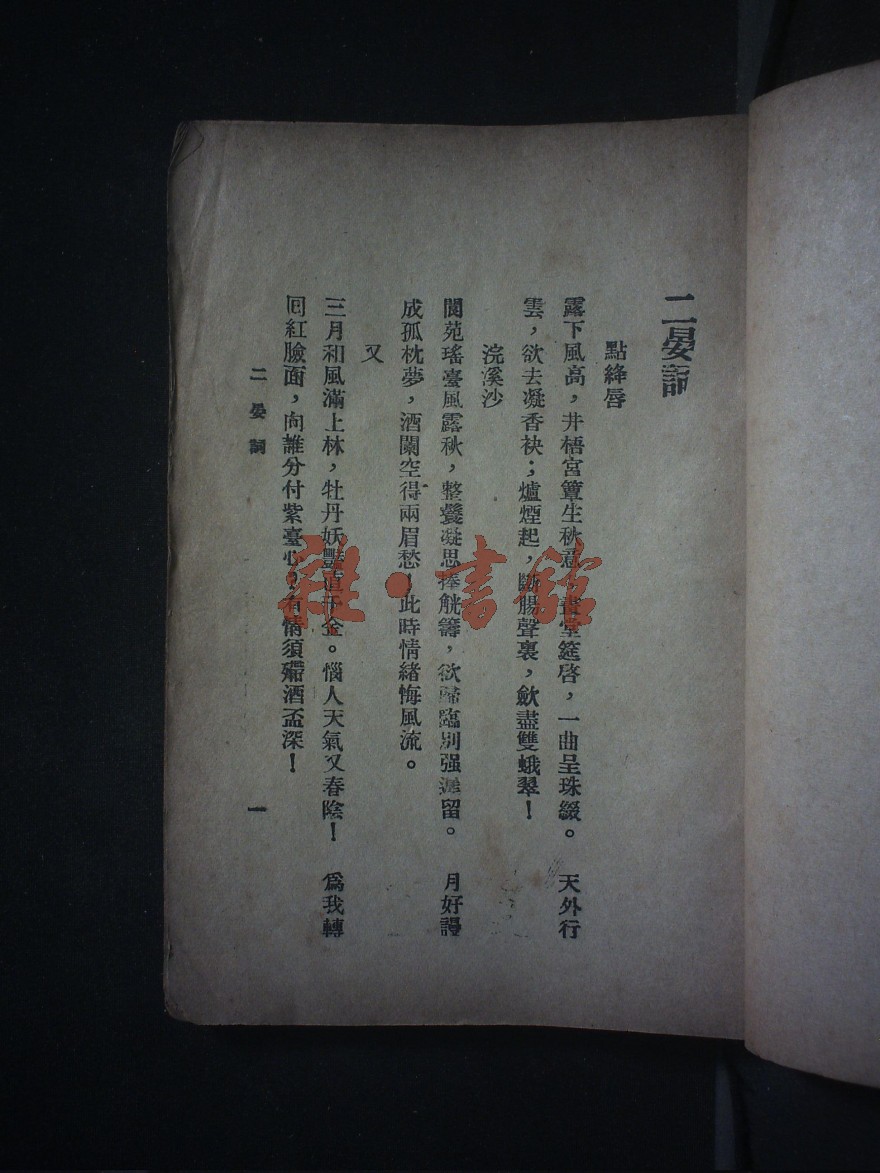 二晏詞
點絳唇
露下風高，井梧宮簟生秋意，畫堂筵啓，一曲呈珠綴。　天外行
雲，欲去凝香袂；爐煙起，斷腸聲裏，斂盡雙蛾翠！
浣溪沙
閬苑瑤臺風露秋，整鬟凝思捧觥籌，欲歸臨別强遲留。　月好謾
成孤枕夢，酒闌空得兩眉愁！此時情緒悔風流。
又
三月和風滿上林，牡丹妖艷直千金。惱人天氣又春陰！　爲我轉
囘紅臉面，向誰分付紫臺心！有情須殢酒盃深！
二晏詞
一
雜·書館